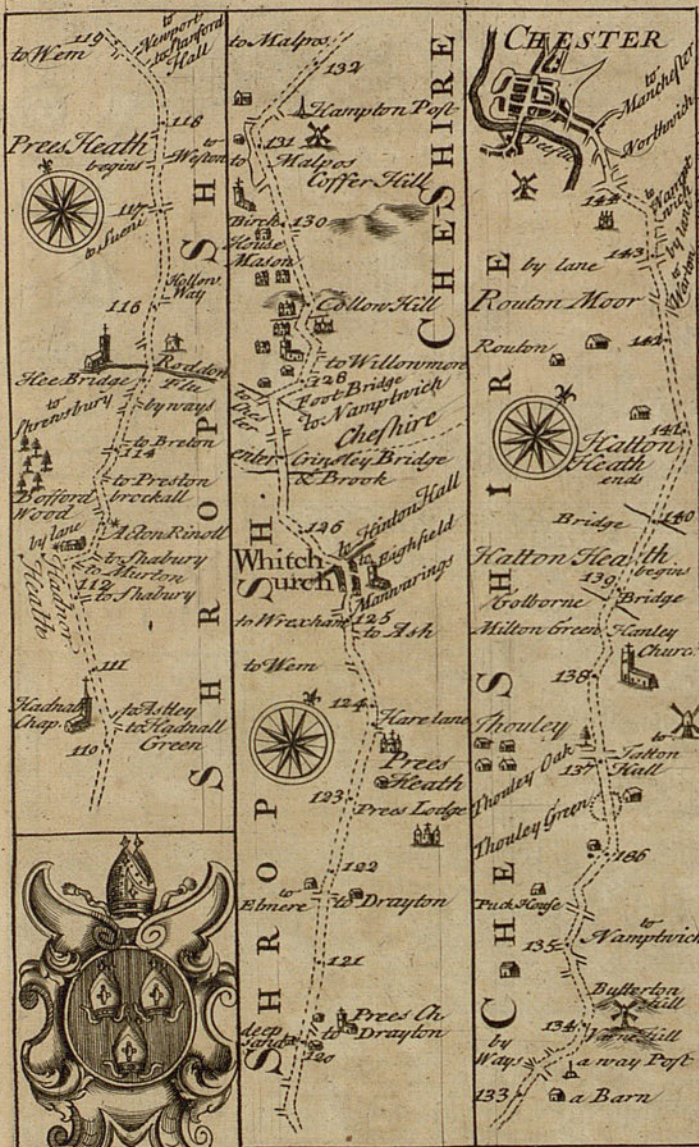 119
to Wem
to Newport
to Stanford
Hall
118
Prees Heath
begins
to
Weston
117
to Sueni
Hollow
Way
116
Roddon
Flu
Hee Bridge
to
Shrewsbury
by ways
to Breton
114
to Preston
brockall
Bofford
Wood
Acton Rinoll
by lane
to Shabury
to Murton
112
to Shabury
Hadnor
Heath
111
Hadnall
Chap.
to Astley
to Hadnall
Green
110
SHROPSH.
to Malpos
132
Hampton Post
131
to
Malpos
Coffer Hill
Birch
130
House
Mason
Collow Hill
to Willowmore
128
Foot Bridge
to Namptwich
to Chester
Cheshire
enter
Grinsley Bridge
& Brook
126
to Hinton Hall
to Bighfield
Whitch
urch
Manwarings
to Wrexham
125
to Ash
to Wem
124
Hare lane
Prees
Heath
123
Prees Lodge
122
to
Elmere
to Drayton
121
Prees Ch
to
Drayton
deep
sand
120
SHROPSH.
CHESHIRE
CHESTER
Dee flu
to
Manchester
Northwich
144
to
Nampt
wich
by lane
143
to
Warton
by lane
Routon Moor
142
Routon
141
Hatton
Heath
ends
Bridge
140
Hatton Heath
begins
139
Golborne
Bridge
Milton Green
Hanley
Churc.
138
Thouley
to
Tatton
Hall
Thouley Oak
137
Thouley Green
186
Puck House
135
to
Namptwich
Butterton
Hill
134
by
Ways
a way Post
133
a Barn
CHESHIRE